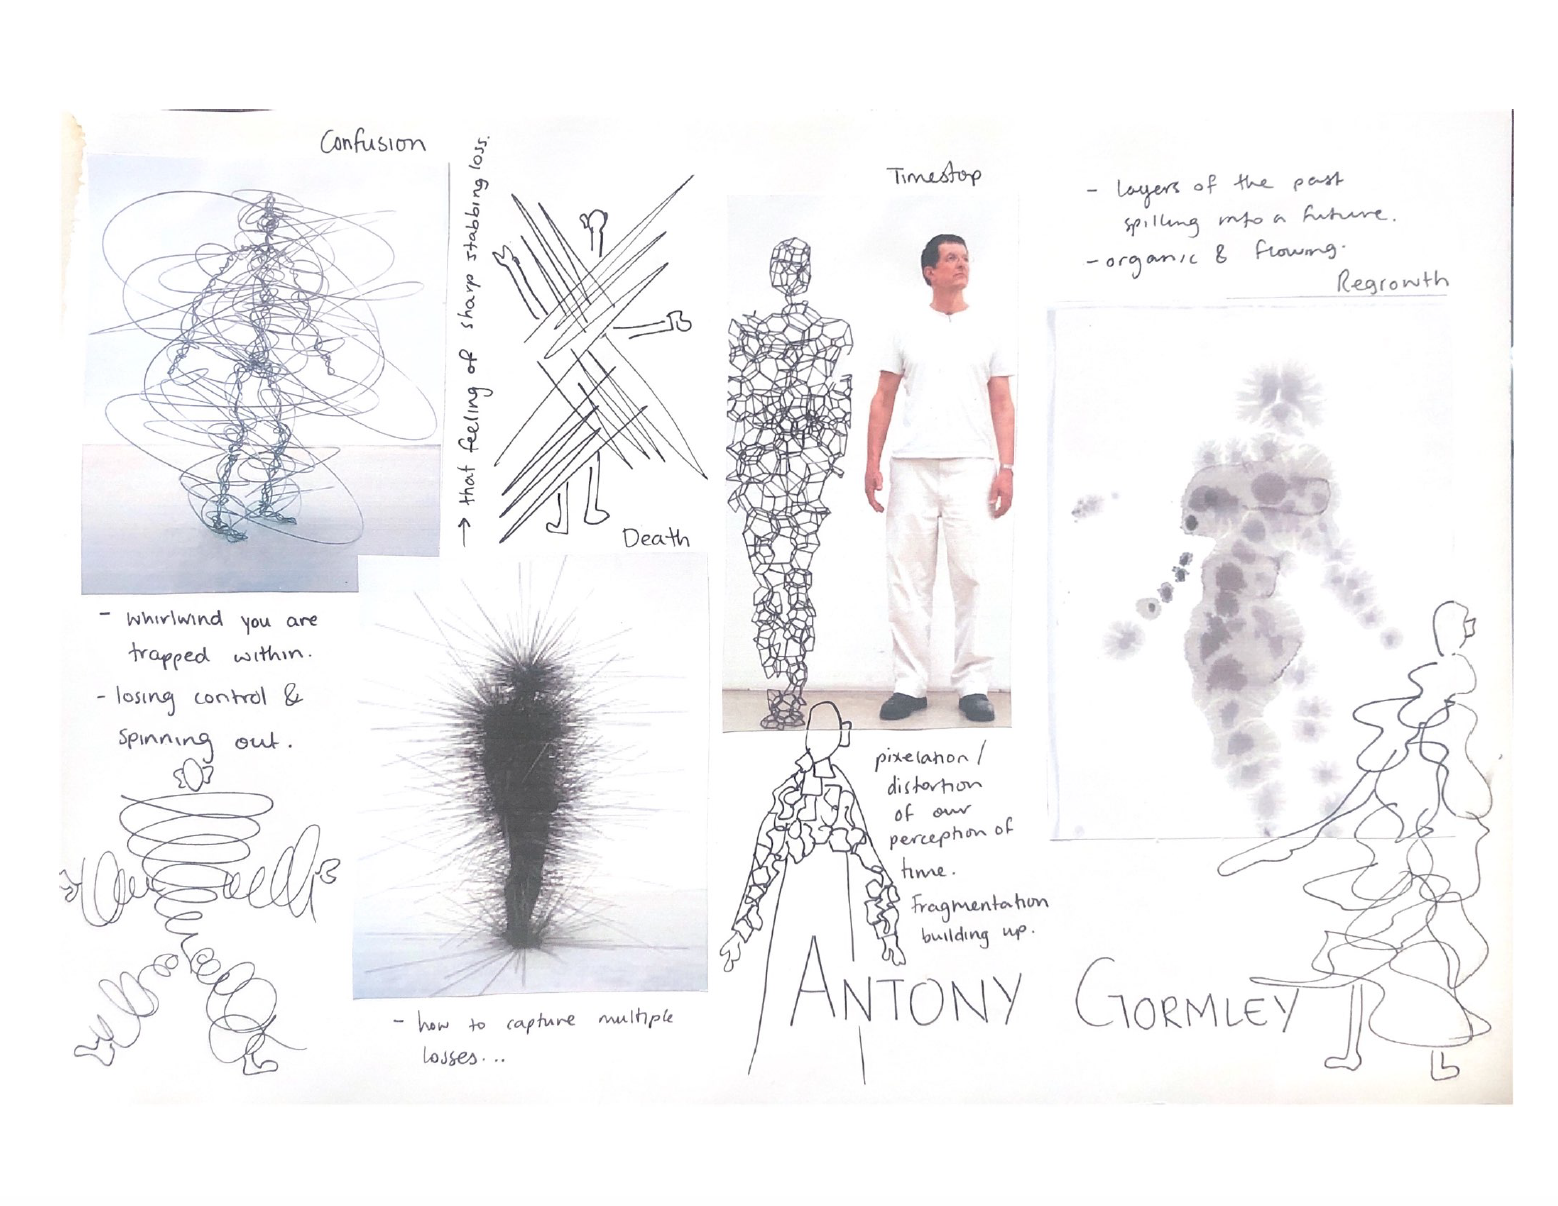 Confusion
→ that feeling of sharp stabbing loss.
Death
- whirlwind you are
trapped within.
- losing control &
spinning out.
- how to capture multiple
losses...
Timestop
pixelation/
distortion
of our
perception of
time.
Fragmentation
building up.
- layers of the past
spilling into a future.
- organic & flowing.
Regrowth
ANTONY GORMLEY